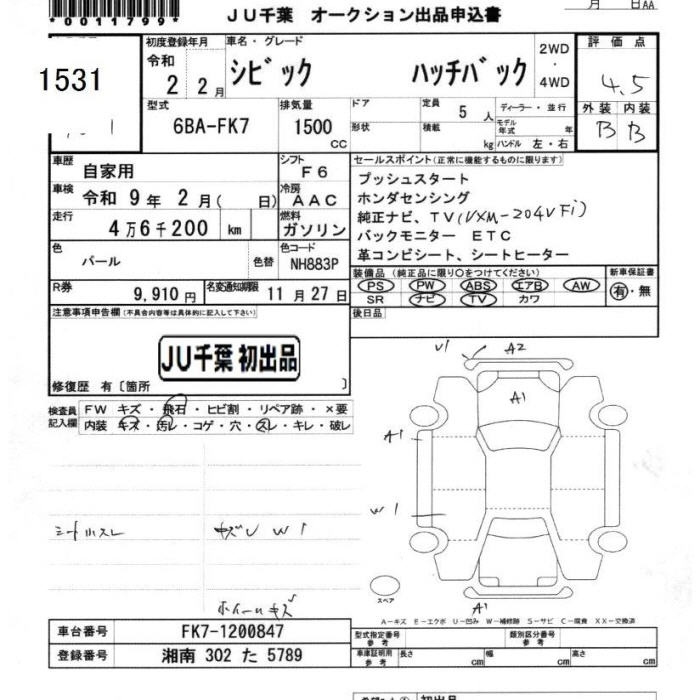 *0011799*
月 日AA
JU千葉 オークション出品申込書
1531
初度登録年月
令和
2 2月
車名・グレード
シビック ハッチバック
2WD
・
4WD
評価点
4.5
外装 内装
B B
型式
6BA-FK7
排気量
1500
CC
ドア
形状
定員
5 人
積載
kg
ディーラー・並行
モデル
年式 年
ハンドル 左・右
車歴
自家用
シフト
F6
車検
令和 9年 2月( 日)
冷房
AAC
走行
4万6千200 km
燃料
ガソリン
色
パール
色替
色コード
NH883P
R券
9,910円
名変通知期限
11月27日
セールスポイント(正常に機能するものに限ります)
プッシュスタート
ホンダセンシング
純正ナビ、TV(VXM-204VFi)
バックモニター ETC
革コンビシート、シートヒーター
装備品(純正品に限り○をつけてください)
PS PW ABS エアB AW
SR ナビ TV カワ
新車保証書
有・無
後日品
注意事項申告欄(不具合内容等は具体的に記入して下さい)
JU千葉 初出品
修復歴 有〔箇所 〕
検査員
記入欄
FW キズ・飛石・ヒビ割・リペア跡・×要
内装 キズ・汚レ・コゲ・穴・スレ・キレ・破レ
シート小スレ
キズU W1
ホイールキズ
U1
A2
A1
A1
W1
A1
スペア
A-キズ E-エクボ U-凹み W-補修跡 S-サビ C-腐食 XX-交換済
車台番号
FK7-1200847
登録番号
湘南 302 た 5789
型式指定番号
参考
類別区分番号
参考
車庫証明用
参考
長さ cm
幅 cm
高さ cm
初出品